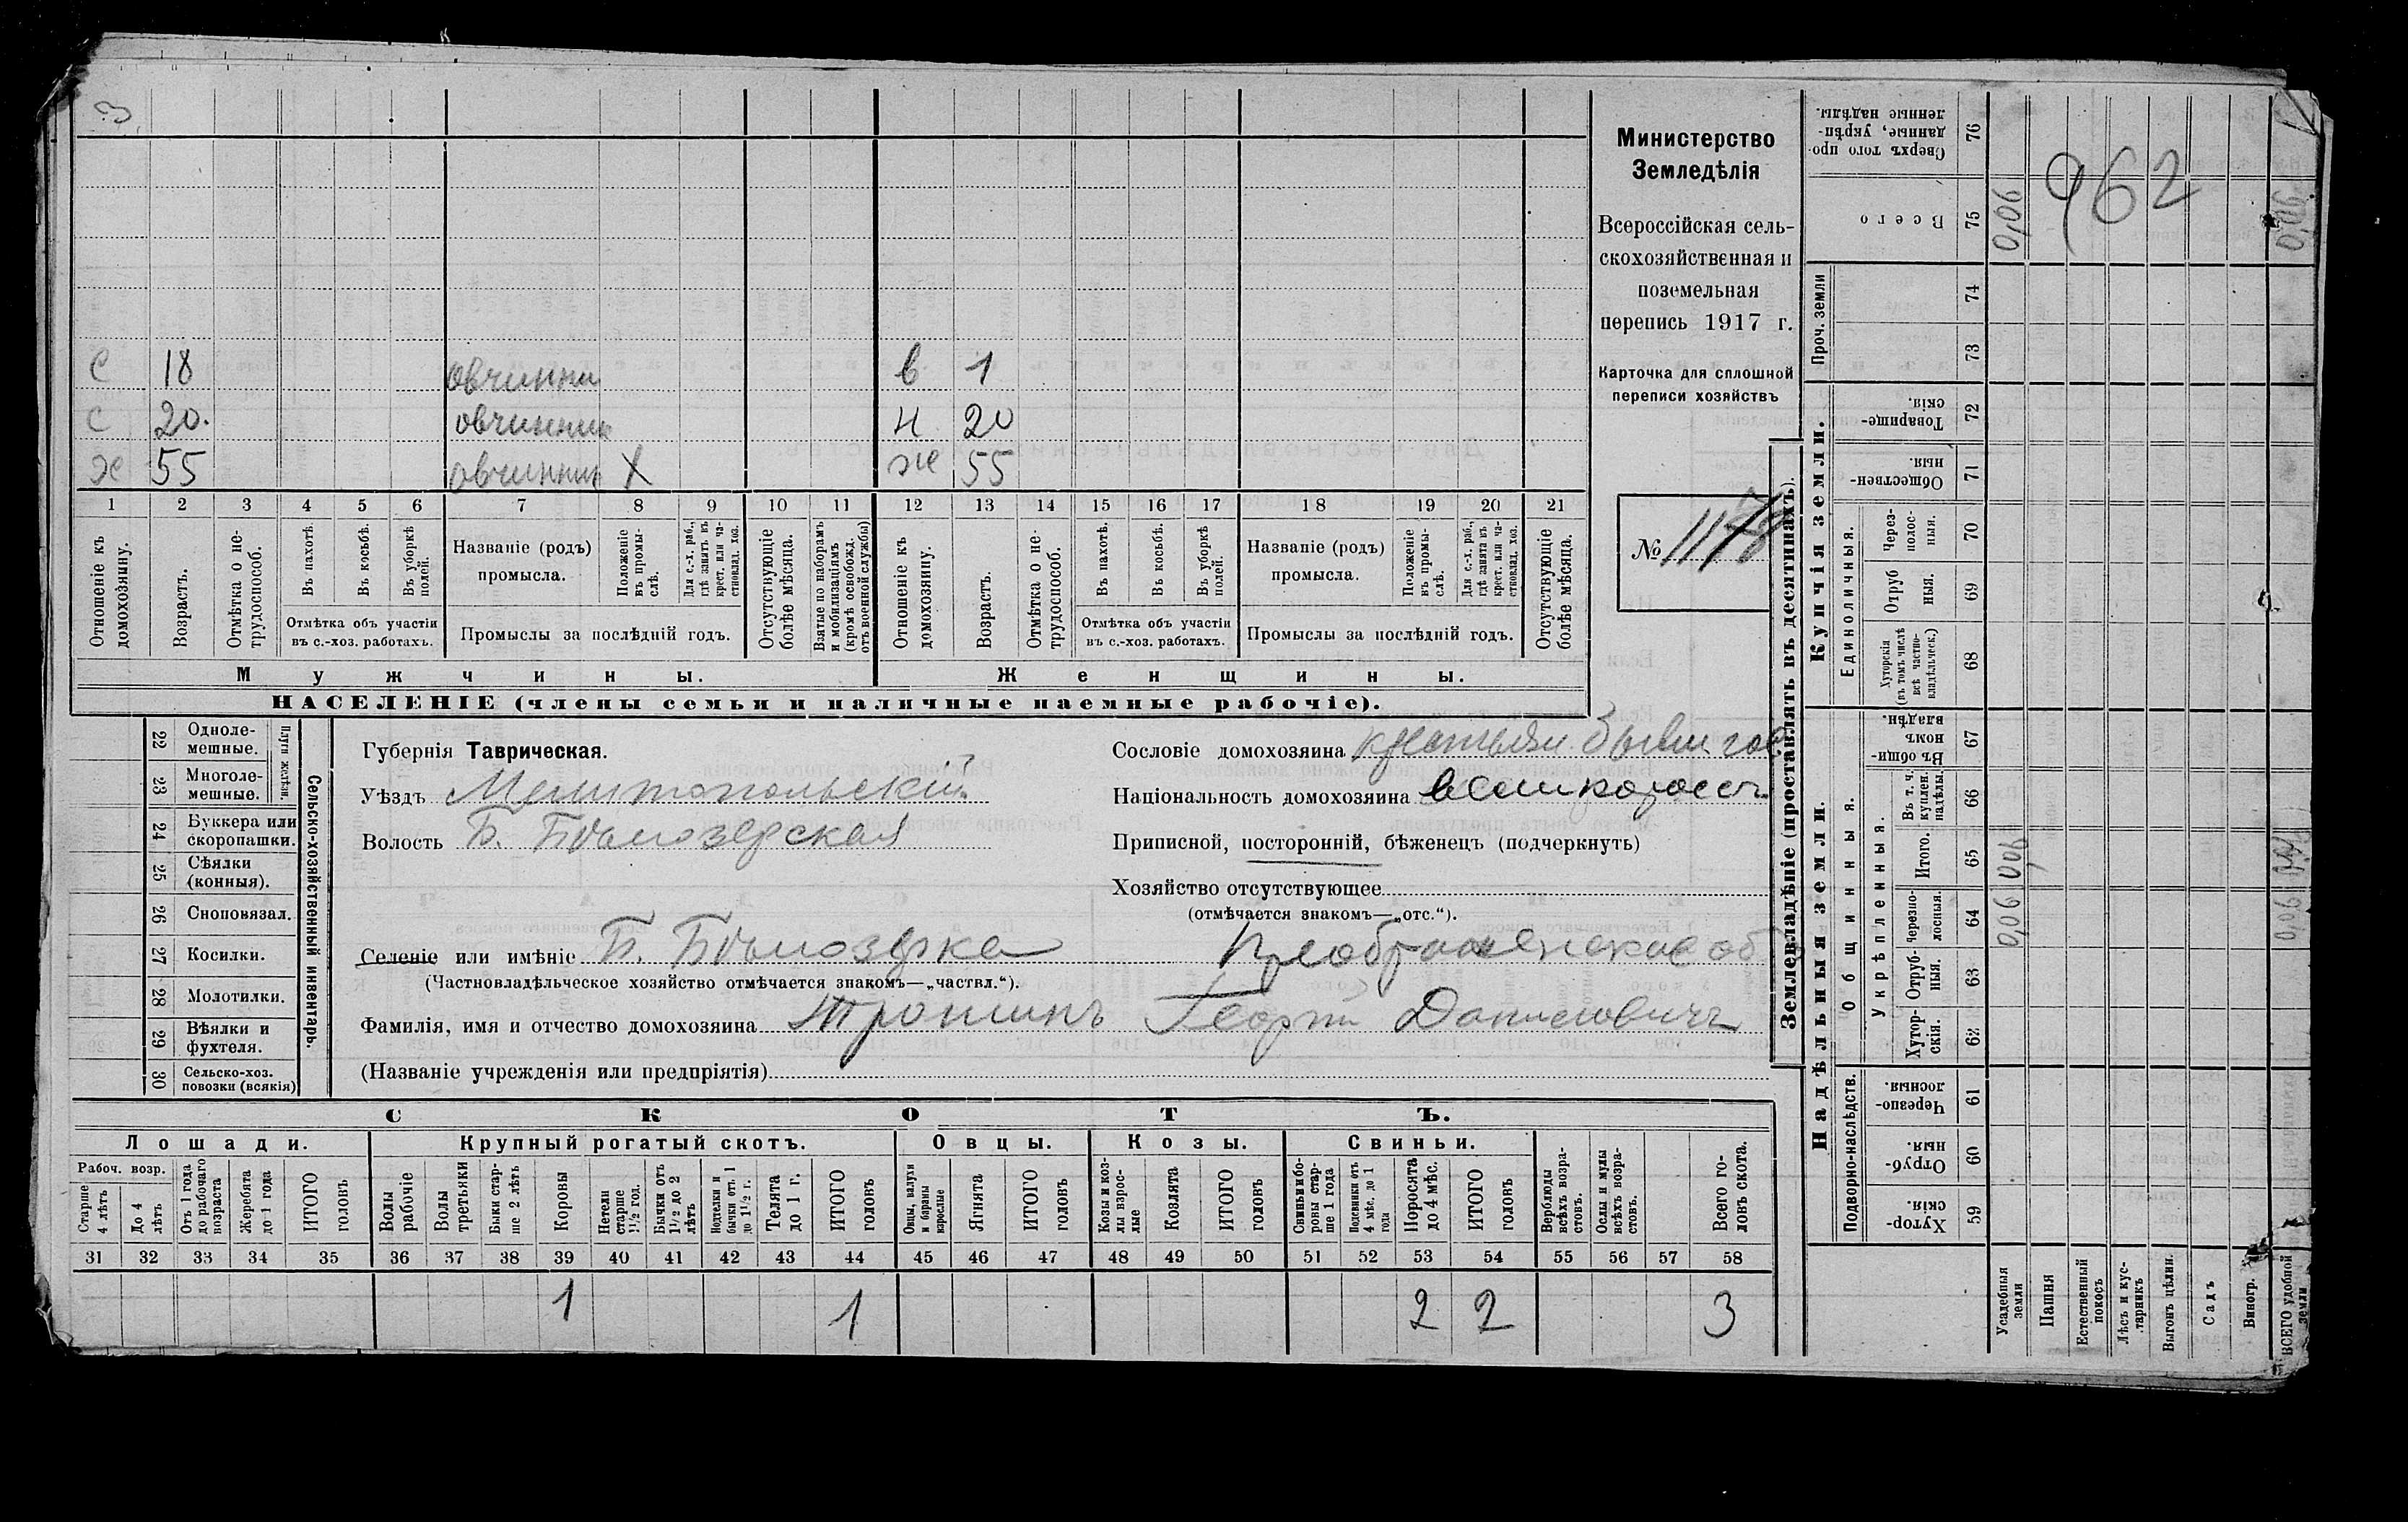 Министерство
Земледѣлія
Всероссійская сель-
скохозяйственная и
поземельная
перепись 1917 г.
Карточка для сплошной
переписи хозяйствъ
№ 1178
962
С 18 овчинни в 1
С 20. овчинник н 20
Х 55 овчинник Х ж 55
1 2 3 4 5 6 7 8 9 10 11 12 13 14 15 16 17 18 19 20 21
Отношеніе къ домохозяину.
Возрастъ.
Отмѣтка о не-трудоспособ.
Въ пахотѣ.
Въ косьбѣ.
Въ уборкѣ полей.
Отмѣтка объ участіи
въ с.-хоз. работахъ.
Названіе (родъ)
промысла.
Положеніе въ промы-слѣ.
Для с.-х. раб., гдѣ занятъ въ крест. или ча-стновлад. хоз.
Промыслы за послѣдній годъ.
Отсутствующіе болѣе мѣсяца.
Взятые по наборамъ и мобилизаціямъ (кромѣ освобожд. отъ военной службы)
Отношеніе къ домохозяину.
Возрастъ.
Отмѣтка о не-трудоспособ.
Въ пахотѣ.
Въ косьбѣ.
Въ уборкѣ полей.
Отмѣтка объ участіи
въ с.-хоз. работахъ.
Названіе (родъ)
промысла.
Положеніе въ промы-слѣ.
Для с.-х. раб., гдѣ занята въ крест. или ча-стновлад. хоз.
Промыслы за послѣдній годъ.
Отсутствующіе болѣе мѣсяца.
Мужчины. Женщины.
НАСЕЛЕНІЕ (члены семьи и наличные наемные рабочіе).
Сельско-хозяйственный инвентарь.
Плуги желѣзн.
22 Одноле-мешные.
23 Многоле-мешные.
24 Буккера или скоропашки.
25 Сѣялки (конныя).
26 Сноповязал.
27 Косилки.
28 Молотилки.
29 Вѣялки и фухтеля.
30 Сельско-хоз. повозки (всякія)
Губернія Таврическая.
Уѣздъ Мелитопольскій
Волость Б. Бѣлозерская
Селеніе или имѣніе Б. Бѣлозерка Преображенское об
(Частновладѣльческое хозяйство отмѣчается знакомъ—„частвл.“).
Фамилія, имя и отчество домохозяина Трошинъ Георгій Данилович
(Названіе учрежденія или предпріятія)
Сословіе домохозяина крестьян. бывш. гос
Національность домохозяина великоросс
Приписной, посторонній, бѣженецъ (подчеркнуть)
Хозяйство отсутствующее
(отмѣчается знакомъ—„отс.“).
СКОТЪ.
Лошади. Крупный рогатый скотъ. Овцы. Козы. Свиньи.
Рабоч. возр.
Старше 4 лѣтъ
До 4 лѣтъ
Отъ 1 года до рабочаго возраста
Жеребята до 1 года
ИТОГО головъ
Волы рабочіе
Волы третьяки
Быки стар-ше 2 лѣтъ
Коровы
Нетели старше 1½ год.
Бычки отъ 1½ до 2 лѣтъ
Нетелки и бычки отъ 1 до 1½ г.
Телята до 1 г.
ИТОГО головъ
Овцы, валухи и бараны взрослые
Ягнята
ИТОГО головъ
Козы и коз-лы взрос-лые
Козлята
ИТОГО головъ
Свиньи и бо-ровы стар-ше 1 года
Подсвинки отъ 4 мѣс. до 1 года
Поросята до 4 мѣс.
ИТОГО головъ
Верблюды всѣхъ возра-стовъ.
Ослы и мулы всѣхъ возра-стовъ.
Всего го-ловъ скота.
31 32 33 34 35 36 37 38 39 40 41 42 43 44 45 46 47 48 49 50 51 52 53 54 55 56 57 58
1 1 2 2 3
Землевладѣніе (проставлять въ десятинахъ).
Надѣльныя земли. Купчія земли. Проч. земли
Подворно-наслѣдств.
Общинныя.
Укрѣпленныя.
Единоличныя.
59 Хутор-скія.
60 Отруб-ныя.
61 Черезпо-лосныя.
62 Хутор-скія.
63 Отруб-ныя.
64 Черезпо-лосныя. 0,06
65 Итого. 0,06
66 Въ т. ч. куплен. надѣлы.
67 Въ общин-номъ владѣн.
68 Хуторскія (въ томъ числѣ всѣ частно-владѣльческ.)
69 Отруб ныя.
70 Через-полос-ныя.
71 Обществен-ныя.
72 Товарище-скія.
73
74
75 Всего 0,06
76 Сверхъ того про-данные, укрѣп-ленные надѣлы.
Усадебныя земли
Пашня
Естественный покосъ
Лѣсъ и кус-тарникъ
Выгонъ цѣлин.
Садъ
Виногр.
ВСЕГО удобной земли
0,06 0,06 0,06